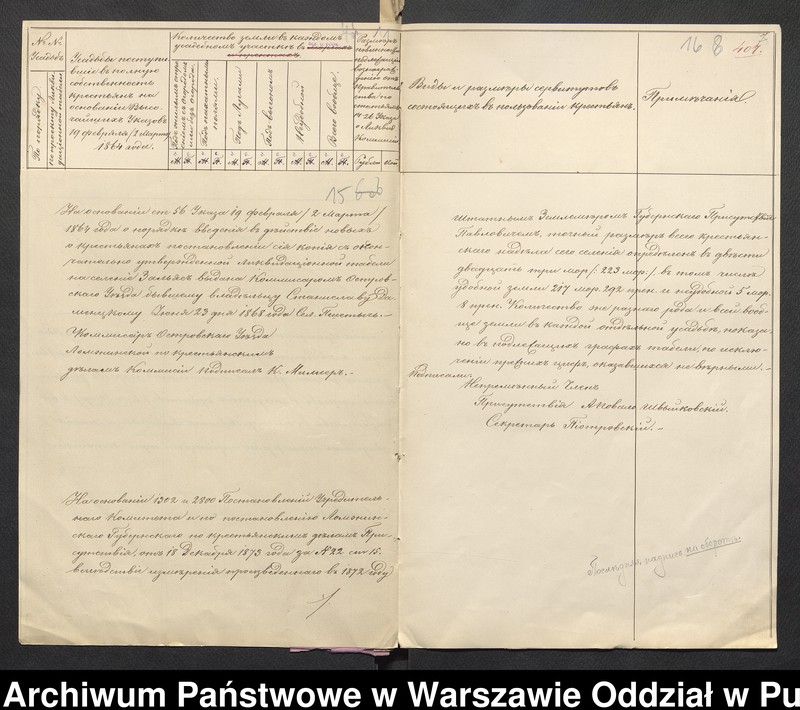 № № Усадебъ
По порядку
По проекту ликвидаціонной табели
Усадьбы поступившія въ полную собственность крестьянъ на основаніи Высочайшихъ Указовъ 19 Февраля/2 Марта 1864 года.
Количество земли въ каждомъ
усадебномъ участкѣ въ
Подъ пахатными полями.
Подъ Лугами
Подъ выгономъ
Неудобной
Всего вообще.
М. П. М. П. М. П. М. П. М. П. М. П. Рубли Коп
Виды и размѣры сервитутовъ
состоящихъ въ пользованіи крестьянъ.
Примѣчанія.
16 8
407.
15
На основаніи ст 56 Указа 19 Февраля/2 Марта/
1864 года о порядкѣ введенія въ дѣйствіе новыхъ
о крестьянахъ постановленій сія копія съ окон-
чательно утвержденной Ликвидаціонной табели
на селеніе Зальясъ выдана Коммисаромъ Остров-
скаго Уѣзда бывшему владѣльцу Станиславу
Іюня 23 дня 1868 года Сел.
Коммисаръ Островскаго Уѣзда
Ломжинской по крестьянскимъ
дѣламъ Коммисіи подписалъ К. Миллеръ.-
На основаніи 1302 и 2800 Постановленій Учредитель-
наго Комитета и по постановленію Ломжин-
скаго Губернскаго по крестьянскимъ дѣламъ При-
сутствія, отъ 18 Декабря 1873 года за № 22 ст 15.
вслѣдствіе измѣренія произведеннаго въ 1872 году
штатнымъ Землемѣромъ Губернскаго Присутствія
Павловичемъ, точный размѣръ всего крестьян-
скаго надѣла сего селенія опредѣленъ въ двѣсти
двадцать три мор/: 223 мор./ въ томъ числѣ
удобной земли 217 мор. 292 прен. и неудобной 5 мор.
8 прен. Количество же разнаго рода и всей вооб-
ще земли въ каждой отдѣльной усадьбѣ, показа-
но въ подлежащихъ графахъ табели, по исклю-
ченіи прежнихъ цифръ, оказавшихся невѣрными.-
Подписали:
Непремѣнный Членъ
Присутствія Аковало Швыйковскій.
Секретарь Піотровскій.-
Послѣдняя надпись на оборотѣ.
Archiwum Państwowe w Warszawie Oddział w Pu